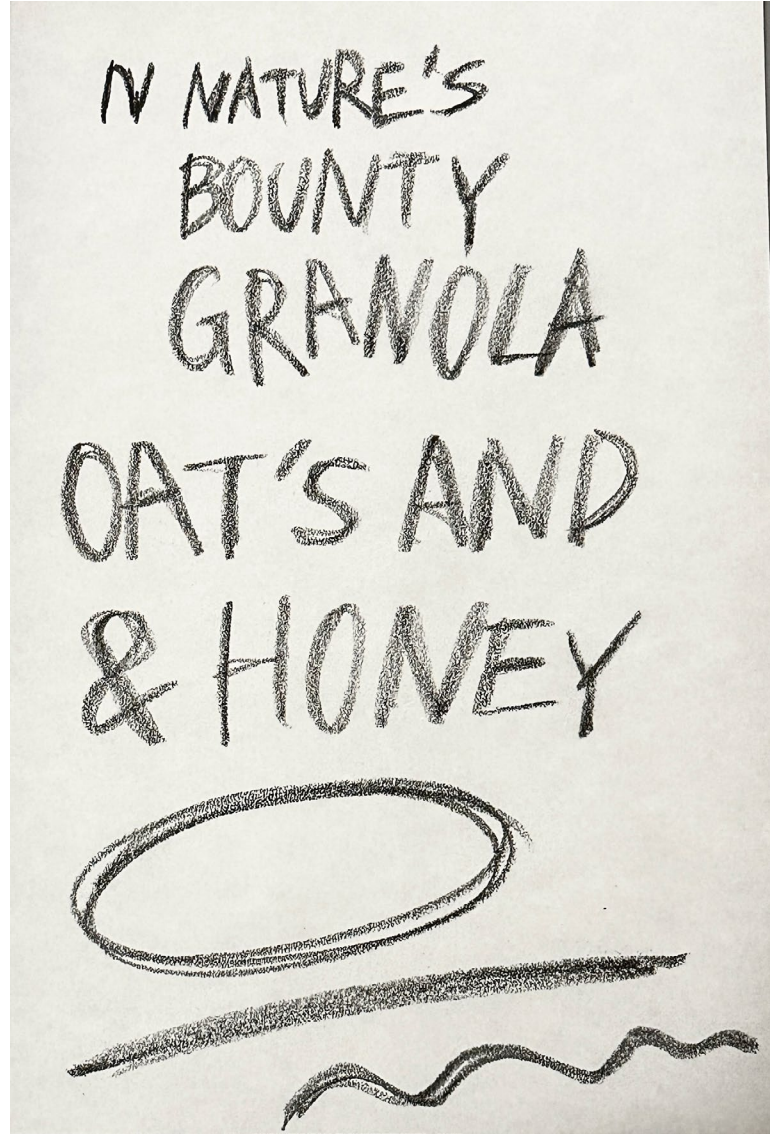 N NATURE'S
BOUNTY
GRANOLA
OAT'S AND
& HONEY